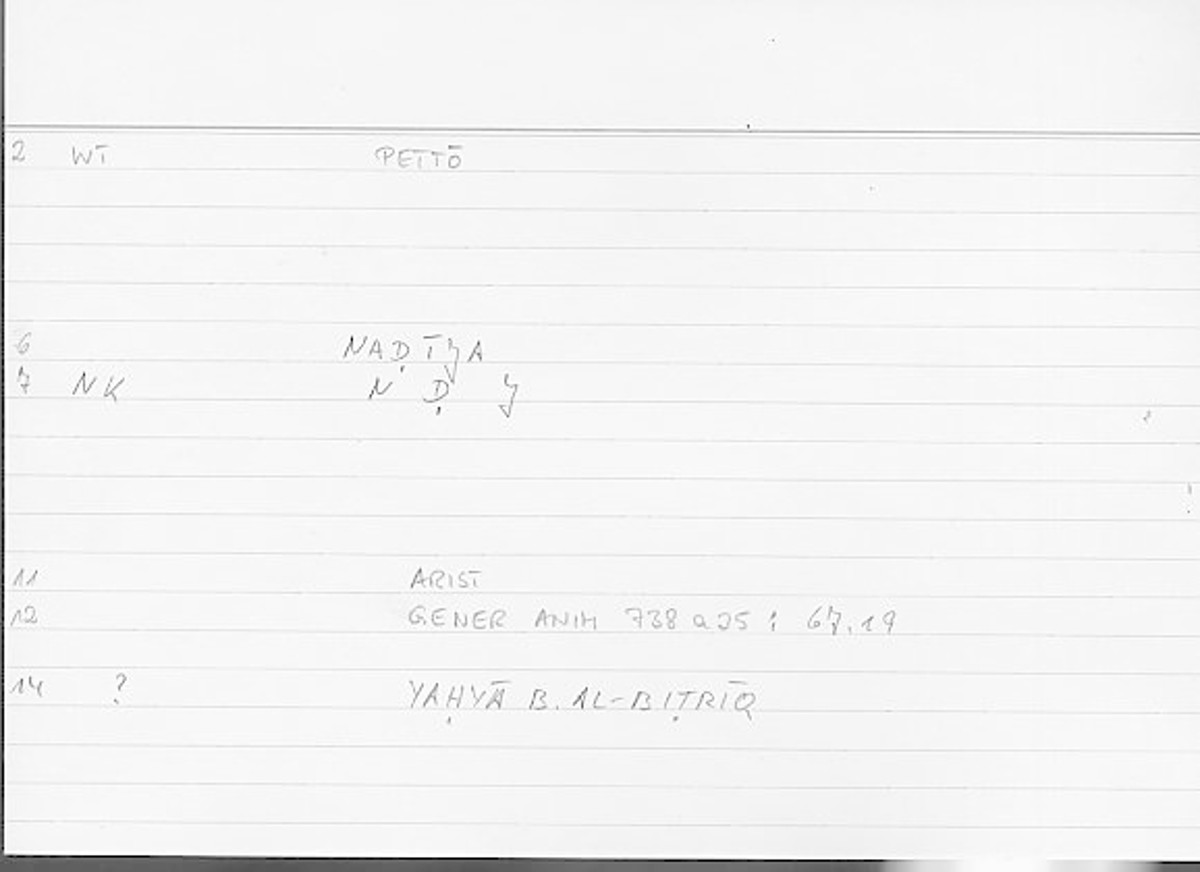 2 WT PETTŌ
6 NAḌIJA
7 NK N Ḍ J
11 ARIST
12 GENER ANIM 738 a25 : 67.19
14 ? YAḤYĀ B. AL-BIṬRĪQ